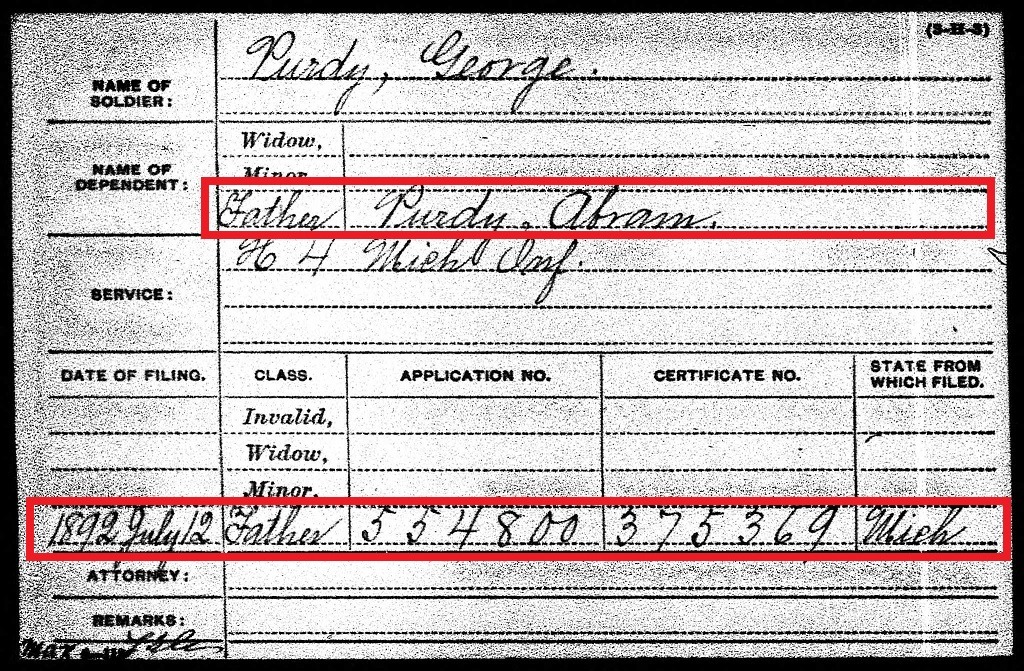 (3-H-3)
NAME OF SOLDIER: Purdy, George.
NAME OF DEPENDENT:
Widow,
Minor,
Father Purdy, Abram.
SERVICE: H 4 Mich Inf.
DATE OF FILING. CLASS. APPLICATION NO. CERTIFICATE NO. STATE FROM WHICH FILED.
Invalid,
Widow,
Minor.
1892 July 12 Father 554800 375369 Mich
ATTORNEY:
REMARKS: